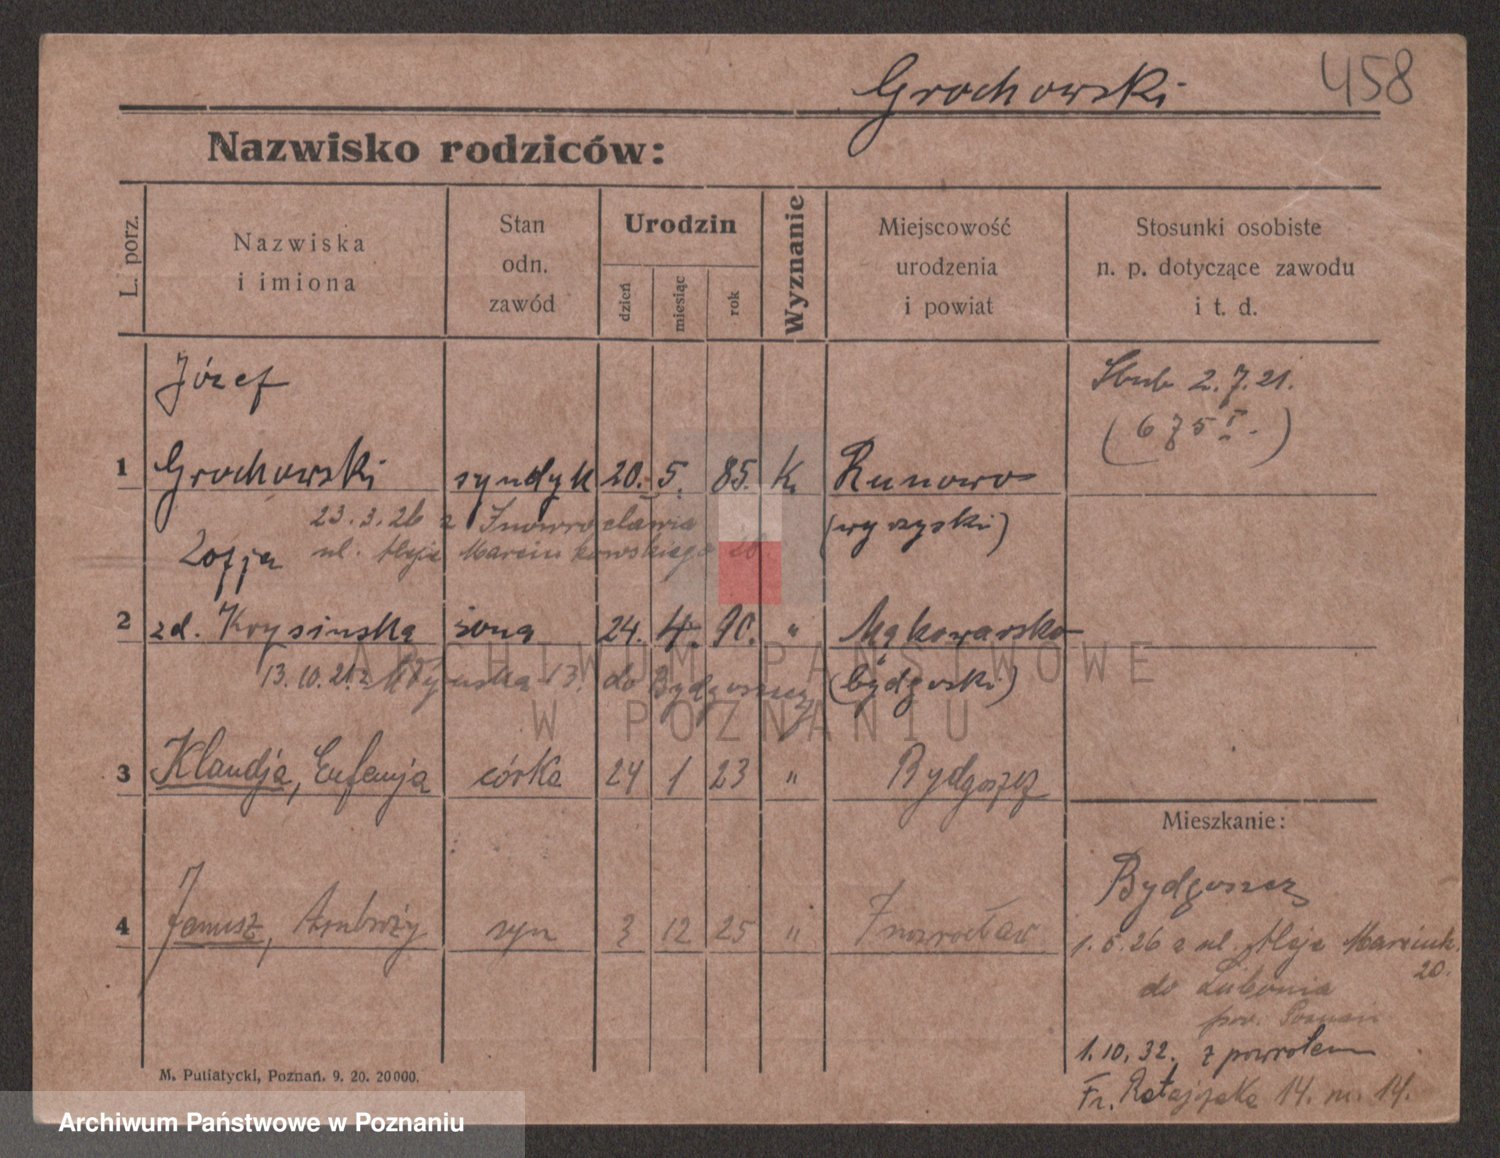 Grochowski 458
Nazwisko rodziców:
L. porz.
Nazwiska
i imiona
Stan
odn.
zawód
Urodzin
dzień
miesiąc
rok
Wyznanie
Miejscowość
urodzenia
i powiat
Stosunki osobiste
n. p. dotyczące zawodu
i t. d.
Józef
1 Grochowski syndyk 20. 5. 85. k. Runowo
(wyrzyski)
Ślub 2.7.21.
(675 I.)
23.3.26 z Inowrocławia
ul. Aleje Marcinkowskiego 20.
Zofja
2 zd. Krysińska żona 24. 4. 90. " Mąkowarsko
(bydgoski)
13.10.21 z 13. do Bydgoszczy
3 Klaudja, Eufemja córka 24 1 23 " Bydgoszcz
4 Janusz, Ambroży syn 3 12 25 " Inowrocław
Mieszkanie:
Bydgoszcz
1.5.26 z ul. Aleje Marcink.
20.
do Lubonia
pow. Poznań
1.10.32. z powrotem
Fr. Ratajczaka 14. m. 14.
M. Putiatycki, Poznań. 9. 20. 20000.
ARCHIWUM PAŃSTWOWE
W POZNANIU
Archiwum Państwowe w Poznaniu